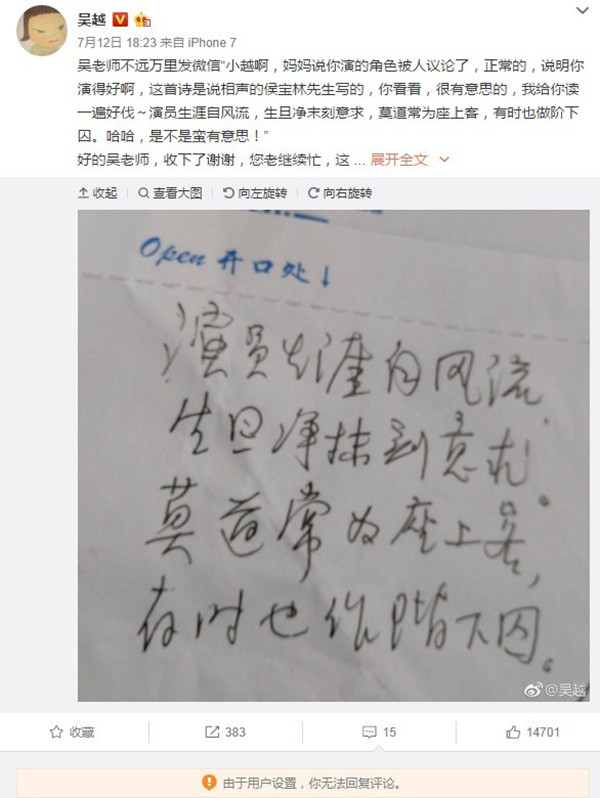 吴越
7月12日 18:23 来自 iPhone 7
吴老师不远万里发微信“小越啊，妈妈说你演的角色被人议论了，正常的，说明你
演得好啊，这首诗是说相声的侯宝林先生写的，你看看，很有意思的，我给你读
一遍好伐～演员生涯自风流，生旦净末刻意求，莫道常为座上客，有时也做阶下
囚。哈哈，是不是蛮有意思！”
好的吴老师，收下了谢谢，您老继续忙，这 ... 展开全文
收起 查看大图 向左旋转 向右旋转
Open 开口处↓
演员生涯自风流
生旦净抹刻意求。
莫道常为座上客，
有时也作阶下囚。
@吴越
收藏 383 15 14701
由于用户设置，你无法回复评论。